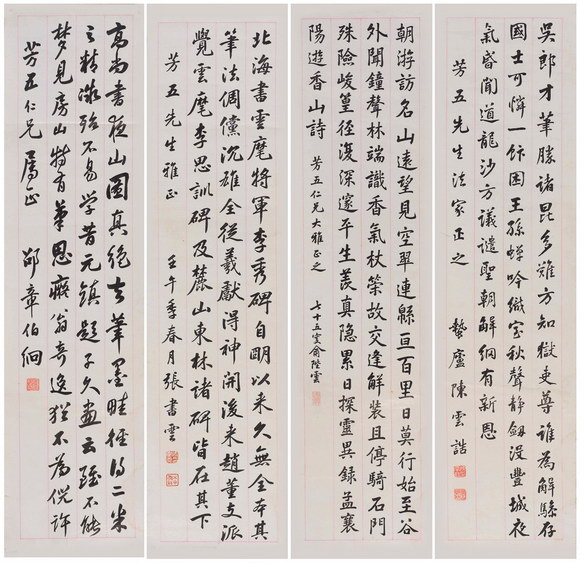 吳郎才筆勝諸昆多難方知獄吏尊誰為解驂存
國士可憐一飯困王孫蟬吟織室秋聲靜劔沒豐城夜
氣昏聞道龍沙方議譴聖朝解網有新恩
芳五先生法家正之
蟄廬陳雲誥
朝游訪名山遠望見空翠連緜亘百里日莫行始至谷
外聞鐘聲林端識香氣杖策故交逢解裝且停騎石門
殊險峻篁徑復深邃平生羨真隐累日探靈異錄孟襄
陽遊香山詩
芳五仁兄大雅正之
七十五叟俞陛雲
北海書雲麾將軍李秀碑自明以来久無全本其
筆法倜儻沉雄全從羲獻得神開後来趙董支派
覺雲麾李思訓碑及麓山東林諸碑皆在其下
芳五先生雅正
壬午季春月張書雲
高尚書夜山圖真絕去筆墨畦徑得二米
之精微殆不易学昔元鎮題子久畫云雖不能
梦見房山特有筆思癡翁奇逸猶不為倪許
芳五仁兄屬正
邵章伯絅